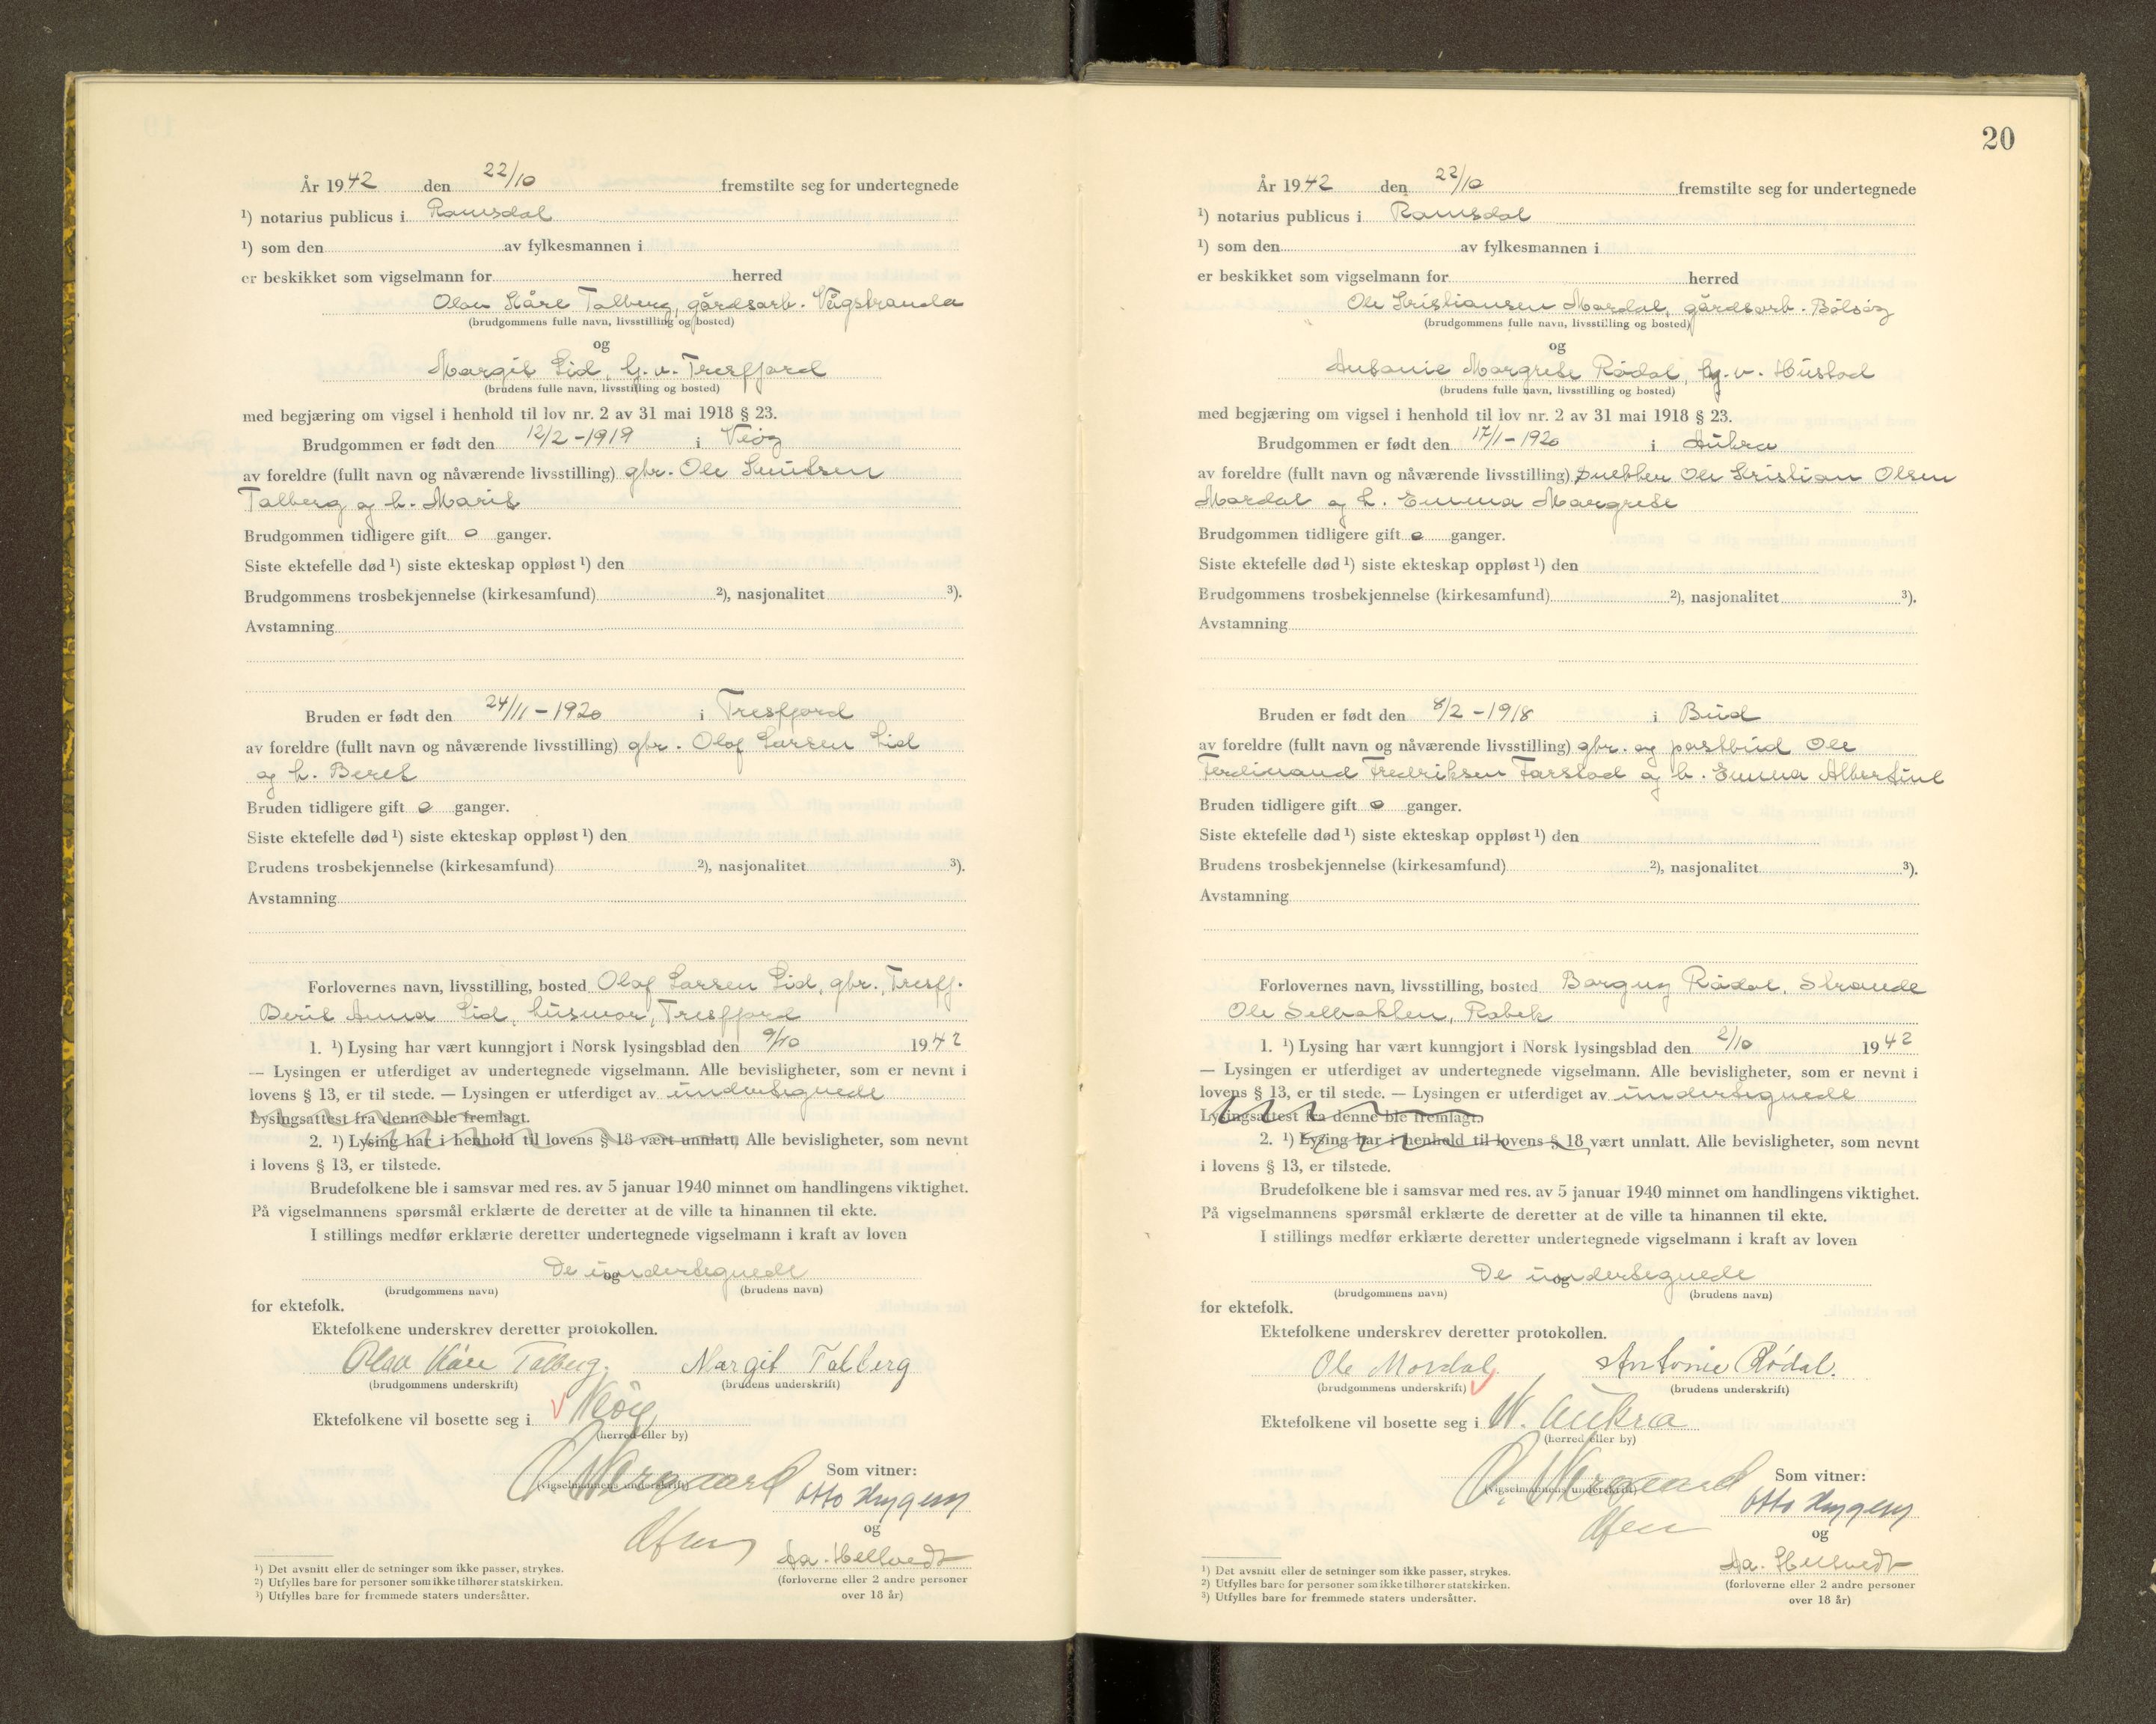 År 1942 den 22/10 fremstilte seg for undertegnede
¹) notarius publicus i Romsdal
¹) som den av fylkesmannen i
er beskikket som vigselmann for herred
Olav Kåre Talberg, gårdsarb. Vågstranda
(brudgommens fulle navn, livsstilling og bosted)
og
Margit Lid, hj. v. Tresfjord
(brudens fulle navn, livsstilling og bosted)
med begjæring om vigsel i henhold til lov nr. 2 av 31 mai 1918 § 23.
Brudgommen er født den 12/2 - 1919 i Veøy
av foreldre (fullt navn og nåværende livsstilling) gbr. Ole Knutsen
Talberg og h. Marit
Brudgommen tidligere gift 0 ganger.
Siste ektefelle død ¹) siste ekteskap oppløst ¹) den
Brudgommens trosbekjennelse (kirkesamfund) ²), nasjonalitet ³).
Avstamning
Bruden er født den 24/11 - 1920 i Tresfjord
av foreldre (fullt navn og nåværende livsstilling) gbr. Olaf Larsen Lid
og h. Beret
Bruden tidligere gift 0 ganger.
Siste ektefelle død ¹) siste ekteskap oppløst ¹) den
Brudens trosbekjennelse (kirkesamfund) ²), nasjonalitet ³).
Avstamning
Forlovernes navn, livsstilling, bosted Olaf Larsen Lid, gbr., Tresfj.
Berit Anna Lid, husmor, Tresfjord
1. ¹) Lysing har vært kunngjort i Norsk lysingsblad den 9/10 1942
— Lysingen er utferdiget av undertegnede vigselmann. Alle bevisligheter, som er nevnt i
lovens § 13, er til stede. — Lysingen er utferdiget av undertegnede
Lysingsattest fra denne ble fremlagt.
2. ¹) Lysing har i henhold til lovens § 18 vært unnlatt. Alle bevisligheter, som nevnt
i lovens § 13, er tilstede.
Brudefolkene ble i samsvar med res. av 5 januar 1940 minnet om handlingens viktighet.
På vigselmannens spørsmål erklærte de deretter at de ville ta hinannen til ekte.
I stillings medfør erklærte deretter undertegnede vigselmann i kraft av loven
De undertegnede
og
(brudgommens navn) (brudens navn)
for ektefolk.
Ektefolkene underskrev deretter protokollen.
Olav Kåre Talberg. Margit Talberg
(brudgommens underskrift) (brudens underskrift)
Ektefolkene vil bosette seg i Veøy
(herred eller by)
(vigselmannens underskrift)
Som vitner:
Otto
og
Aa. Hellvedt
(forloverne eller 2 andre personer
over 18 år)
¹) Det avsnitt eller de setninger som ikke passer, strykes.
²) Utfylles bare for personer som ikke tilhører statskirken.
³) Utfylles bare for fremmede staters undersåtter.
20
År 1942 den 22/10 fremstilte seg for undertegnede
¹) notarius publicus i Romsdal
¹) som den av fylkesmannen i
er beskikket som vigselmann for herred
Ole Kristiansen Mordal, gårdsarb. Bolsøy
(brudgommens fulle navn, livsstilling og bosted)
og
Antonie Margrete Rødal, hj. v. Hustad
(brudens fulle navn, livsstilling og bosted)
med begjæring om vigsel i henhold til lov nr. 2 av 31 mai 1918 § 23.
Brudgommen er født den 17/1 - 1920 i Aukra
av foreldre (fullt navn og nåværende livsstilling) snekker Ole Kristian Olsen
Mordal og h. Emma Margrete
Brudgommen tidligere gift 0 ganger.
Siste ektefelle død ¹) siste ekteskap oppløst ¹) den
Brudgommens trosbekjennelse (kirkesamfund) ²), nasjonalitet ³).
Avstamning
Bruden er født den 8/2 - 1918 i Bud
av foreldre (fullt navn og nåværende livsstilling) gbr. og postbud Ole
Ferdinand Fredriksen Farstad og h. Emma Albertine
Bruden tidligere gift 0 ganger.
Siste ektefelle død ¹) siste ekteskap oppløst ¹) den
Brudens trosbekjennelse (kirkesamfund) ²), nasjonalitet ³).
Avstamning
Forlovernes navn, livsstilling, bosted Borgny Rødal, Strande
Ole Selbakken, Røbek
1. ¹) Lysing har vært kunngjort i Norsk lysingsblad den 2/10 1942
— Lysingen er utferdiget av undertegnede vigselmann. Alle bevisligheter, som er nevnt i
lovens § 13, er til stede. — Lysingen er utferdiget av undertegnede
Lysingsattest fra denne ble fremlagt.
2. ¹) Lysing har i henhold til lovens § 18 vært unnlatt. Alle bevisligheter, som nevnt
i lovens § 13, er tilstede.
Brudefolkene ble i samsvar med res. av 5 januar 1940 minnet om handlingens viktighet.
På vigselmannens spørsmål erklærte de deretter at de ville ta hinannen til ekte.
I stillings medfør erklærte deretter undertegnede vigselmann i kraft av loven
De undertegnede
og
(brudgommens navn) (brudens navn)
for ektefolk.
Ektefolkene underskrev deretter protokollen.
Ole Mordal. Antonie Rødal.
(brudgommens underskrift) (brudens underskrift)
Ektefolkene vil bosette seg i N. Aukra
(herred eller by)
(vigselmannens underskrift)
Som vitner:
Otto
og
Aa. Hellvedt
(forloverne eller 2 andre personer
over 18 år)
¹) Det avsnitt eller de setninger som ikke passer, strykes.
²) Utfylles bare for personer som ikke tilhører statskirken.
³) Utfylles bare for fremmede staters undersåtter.